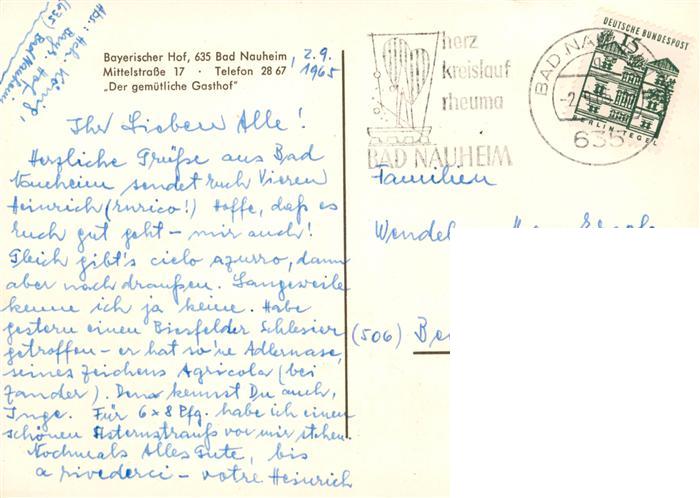 Abs.: Hch. König,
Bayr. Hof,
(635) Bad Nauheim
Bayerischer Hof, 635 Bad Nauheim, 2.9.
Mittelstraße 17 · Telefon 28 67 1965
„Der gemütliche Gasthof"
Ihr Lieben Alle!
Herzliche Grüße aus Bad
Nauheim sendet Euch Vieren
Heinrich (Enrico!) Hoffe, daß es
Euch gut geht – mir auch!
Gleich gibt's cielo azzurro, dann
aber nach draußen. Langeweile
kenne ich ja keine. Habe
gestern einen Biesfelder Schlesier
getroffen – er hat so'ne Adlernase,
seines Zeichens Agricola (bei
Zander). Den kennst Du auch,
Inge. Für 6 x 8 Pfg. habe ich einen
schönen Asternstrauß vor mir stehen.
Nochmals Alles Gute, bis
a rivederci – votre Heinrich
herz
kreislauf
rheuma
BAD NAUHEIM
BAD NAU
635
DEUTSCHE BUNDESPOST
15
BERLIN-TEGEL
Familien
Wendel
(506) Be